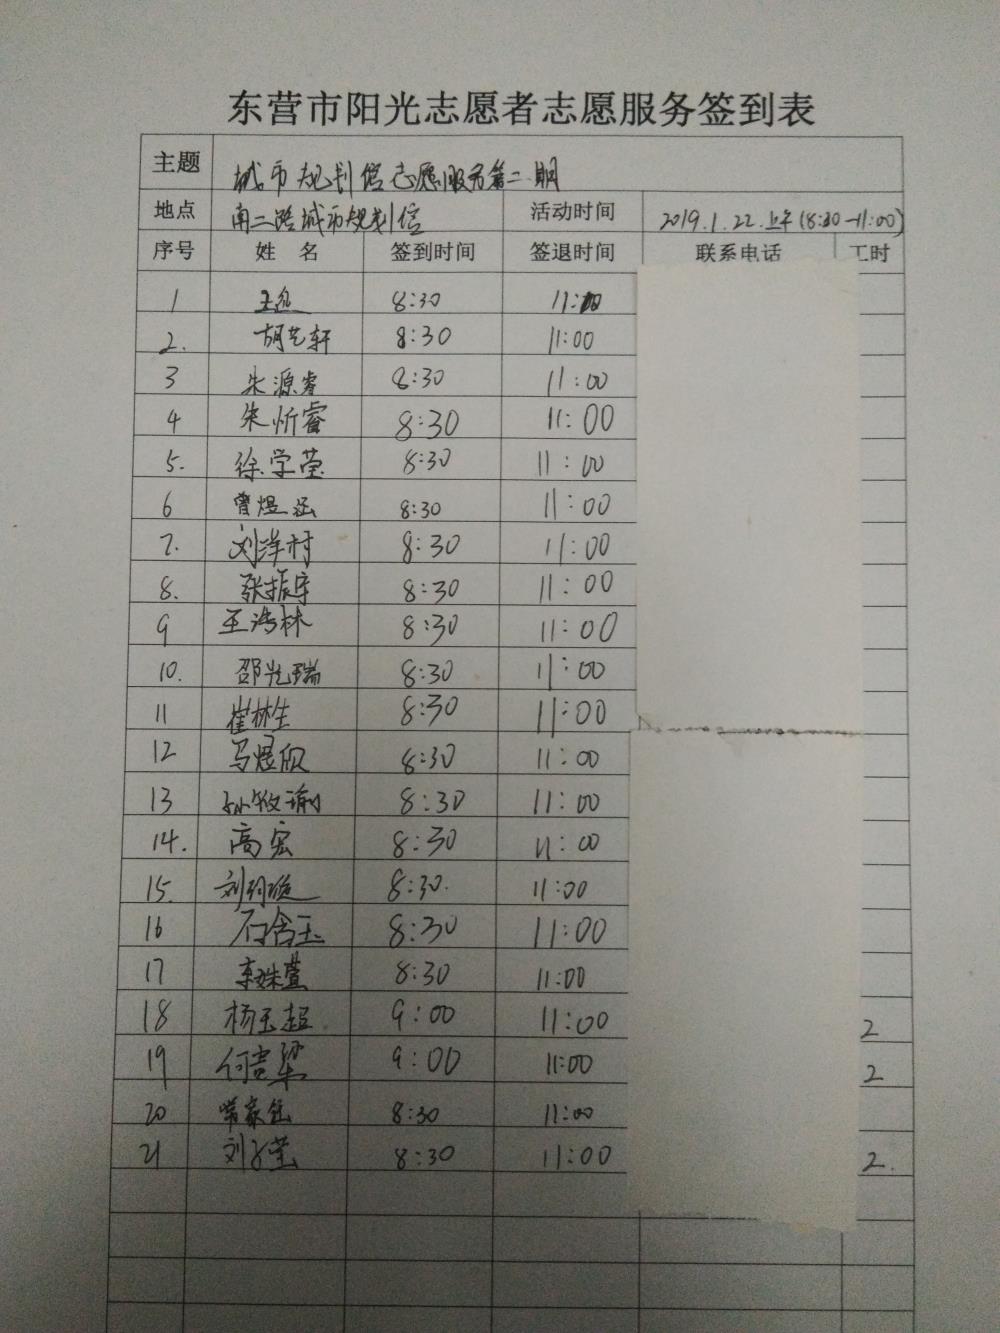 东营市阳光志愿者志愿服务签到表
主题 城市规划馆志愿服务第二期
地点 南二路城市规划馆 活动时间 2019.1.22.上午(8:30-11:00)
序号 姓名 签到时间 签退时间 联系电话 工时
1 8:30 11:00
2. 胡艺轩 8:30 11:00
3 朱源睿 8:30 11:00
4 朱炘睿 8:30 11:00
5. 徐学莹 8:30 11:00
6 曾煜涵 8:30 11:00
7. 刘洋村 8:30 11:00
8. 张振宇 8:30 11:00
9 王浩林 8:30 11:00
10. 邵光瑞 8:30 11:00
11 崔林生 8:30 11:00
12 马煜欣 8:30 11:00
13 孙牧瑜 8:30 11:00
14. 高宏 8:30 11:00
15. 8:30. 11:00
16 石含玉 8:30 11:00
17 8:30 11:00
18 杨玉超 9:00 11:00 2
19 何吉梁 9:00 11:00 2
20 8:30 11:00
21 8:30 11:00 2.